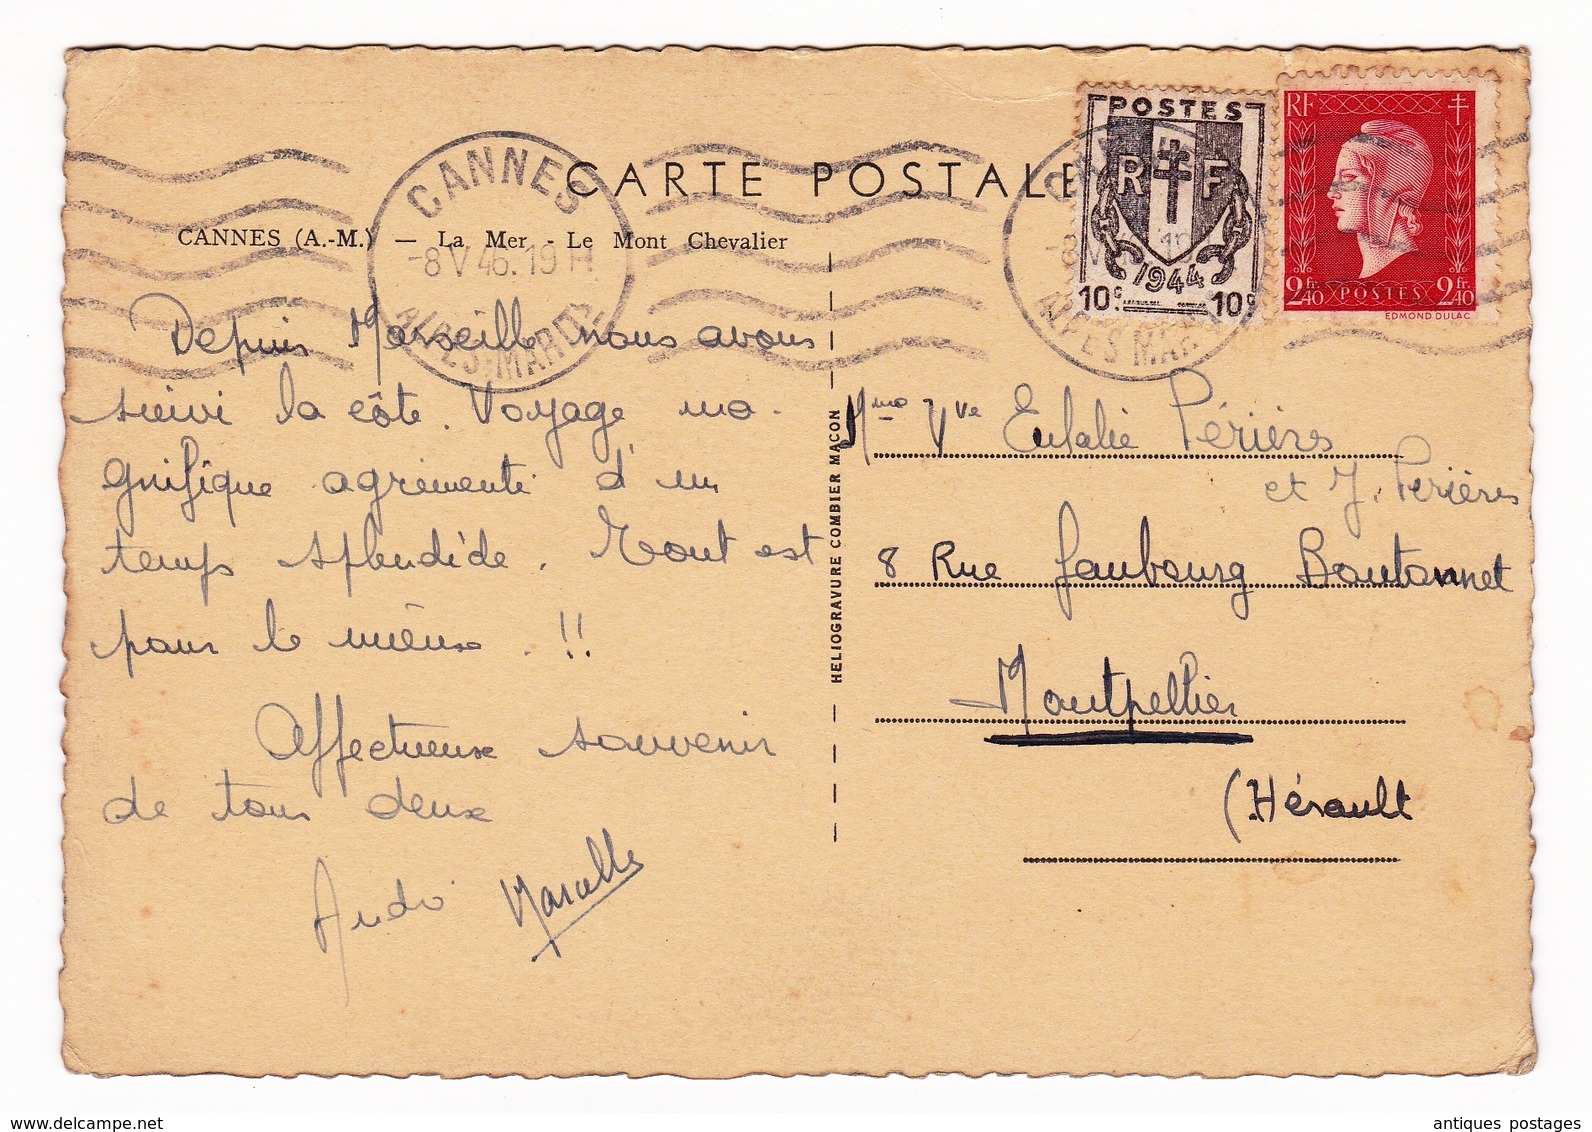 CARTE POSTALE
CANNES (A.-M.) — La Mer - Le Mont Chevalier
CANNES
-8 V 46. 19 H
ALPES MARITIMES
POSTES
R F
1944
10c. 10c.
RF
2fr.40 POSTES 2fr.40
EDMOND DULAC
Depuis Marseille nous avons
suivi la côte. Voyage ma-
gnifique agrémenté d'un
temps splendide. Tout est
pour le mieux. !!
Affectueux souvenir
de tous deux
André Marcelle
HELIOGRAVURE COMBIER MACON
Mme Vve Eulalie Périères
et J. Périères
8 Rue Faubourg Boutonnet
Montpellier
(Hérault
www.delcampe.net
antiques postages